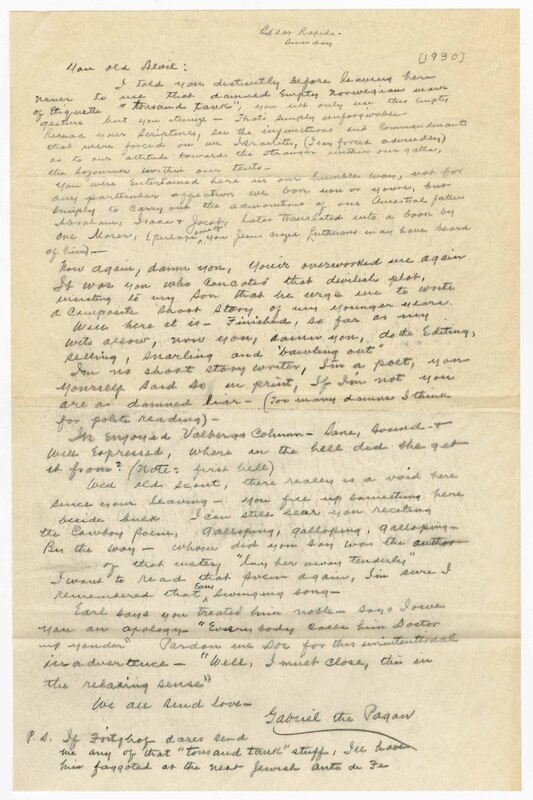 Cedar Rapids -
Sunday
[1930]
You old Devil:
I told you distinctly before leaving here
never to use that damned Empty Norwegian mark
of Etiquette "tousand tank", you not only use this Empty
gesture but you itemize - That's simply unforgivable -
Reread your Scriptures, see the injunctions and Commandments
that were forced on we Israelites, (I say forced advisedly)
as to our attitude towards the stranger within our gates,
the Sojourner within our tents -
You were Entertained here in our humble way, not for
any particular affection we bore you or yours, but
simply to carry out the admonitions of our Ancestral fathers
Abraham, Isaac & Jacob, later translated into a book by
one Moses, (perhaps some of you Jesus crazed Lutherans may have heard
of him) -
Now again, damn you, You've overworked me again
It was you who concocted that devilish plot,
insisting to my Son that he urge me to write
a Composite Short Story of my younger years.
Well here it is - Finished, so far as my
wits allow, now you, damn you, do the Editing,
selling, snarling and "bawling out"
I'm no short story writer, I'm a poet, you
yourself said so in print, If I'm not you
are a damned liar - (Too many damns I think
for polite reading) -
We Enjoyed Valbergs Column - Sane, sound - &
Well Expressed, where in the hell did she get
it from? (Note: first hell)
Well old scout, there really is a void here
since your leaving - you free up something here
beside buck. I can still hear you reciting
the Cowboy Poem, galloping, galloping, galloping -
By the way - whom did you say was the author
of that mastery "lay her away tenderly"
I want to read that poem again, I'm sure I
remembered that Easy swinging song -
Earl says you treated him noble - says I owe
you an apology - "Every body calls him Doctor
up yonder" Pardon me Doc for this unintentional
inadvertence - "Well, I must close, this in
the relaxing sense"
We all send love -
Gabriel the Pagan
P.S. If dares send
me any of that "tousand tank" stuff, I'll have
him faggoted at the next Jewish Auto da Fe